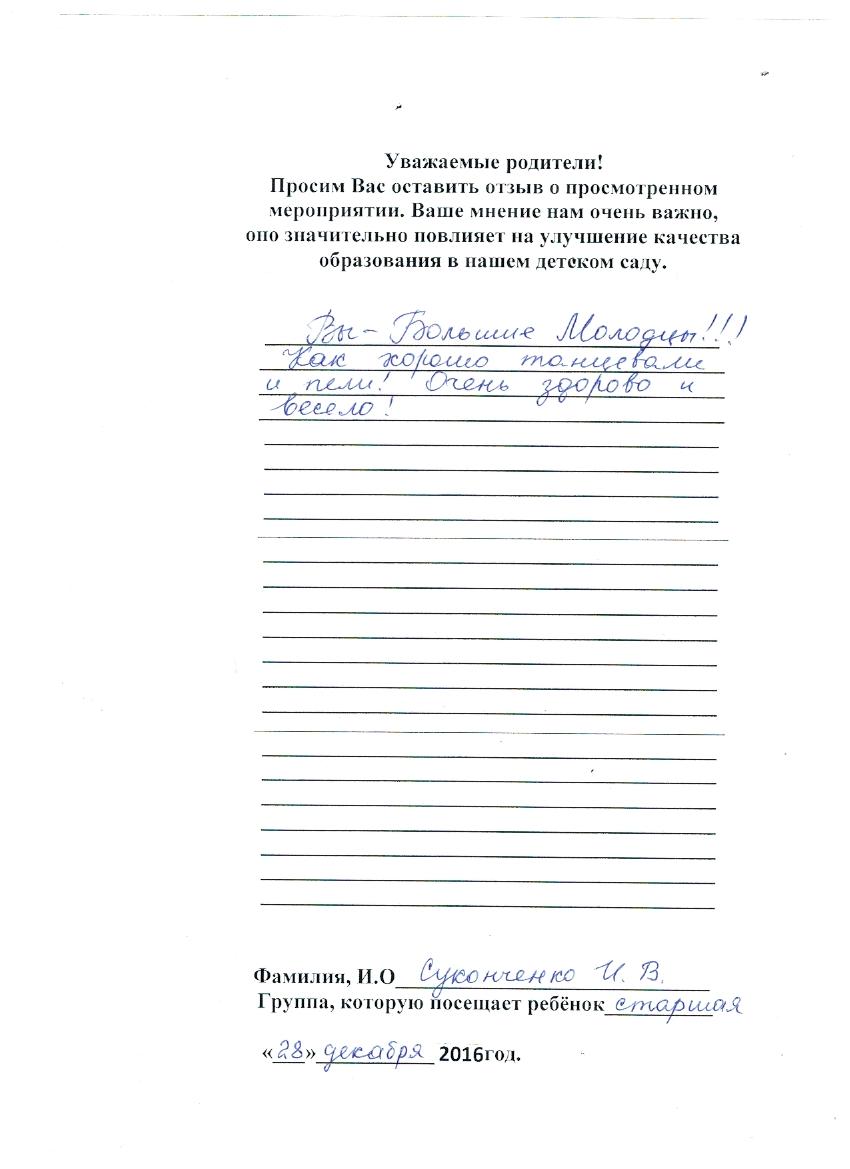 Уважаемые родители!
Просим Вас оставить отзыв о просмотренном
мероприятии. Ваше мнение нам очень важно,
оно значительно повлияет на улучшение качества
образования в нашем детском саду.
Вы - Большие Молодцы!!!
Как хорошо танцевали
и пели! Очень здорово и
весело!
Фамилия, И.О Суконченко И. В.
Группа, которую посещает ребёнок старшая
«28» декабря 2016год.